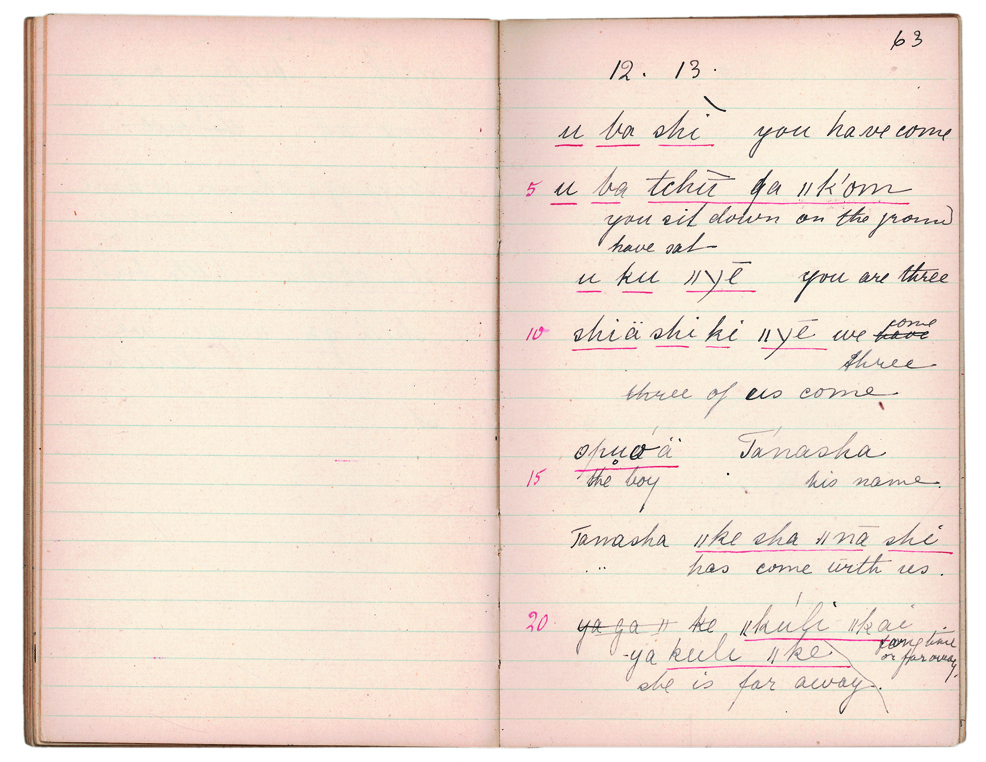 63
12. 13.
u ba shì you have come
5 u ba tchū ga ǁk'om
you sit down on the ground
have sat
u ku ǁyē you are three
come
10 shiä shi ki ǁyē we have
three
three of us come
Tánasha
15 the boy his name.
Tanasha ǁke sha ǁnā shi
" has come with us.
20 ya ga ǁ ke ǁkúli ǁkai
long time
or far away.
ya kuli ǁke
she is far away.